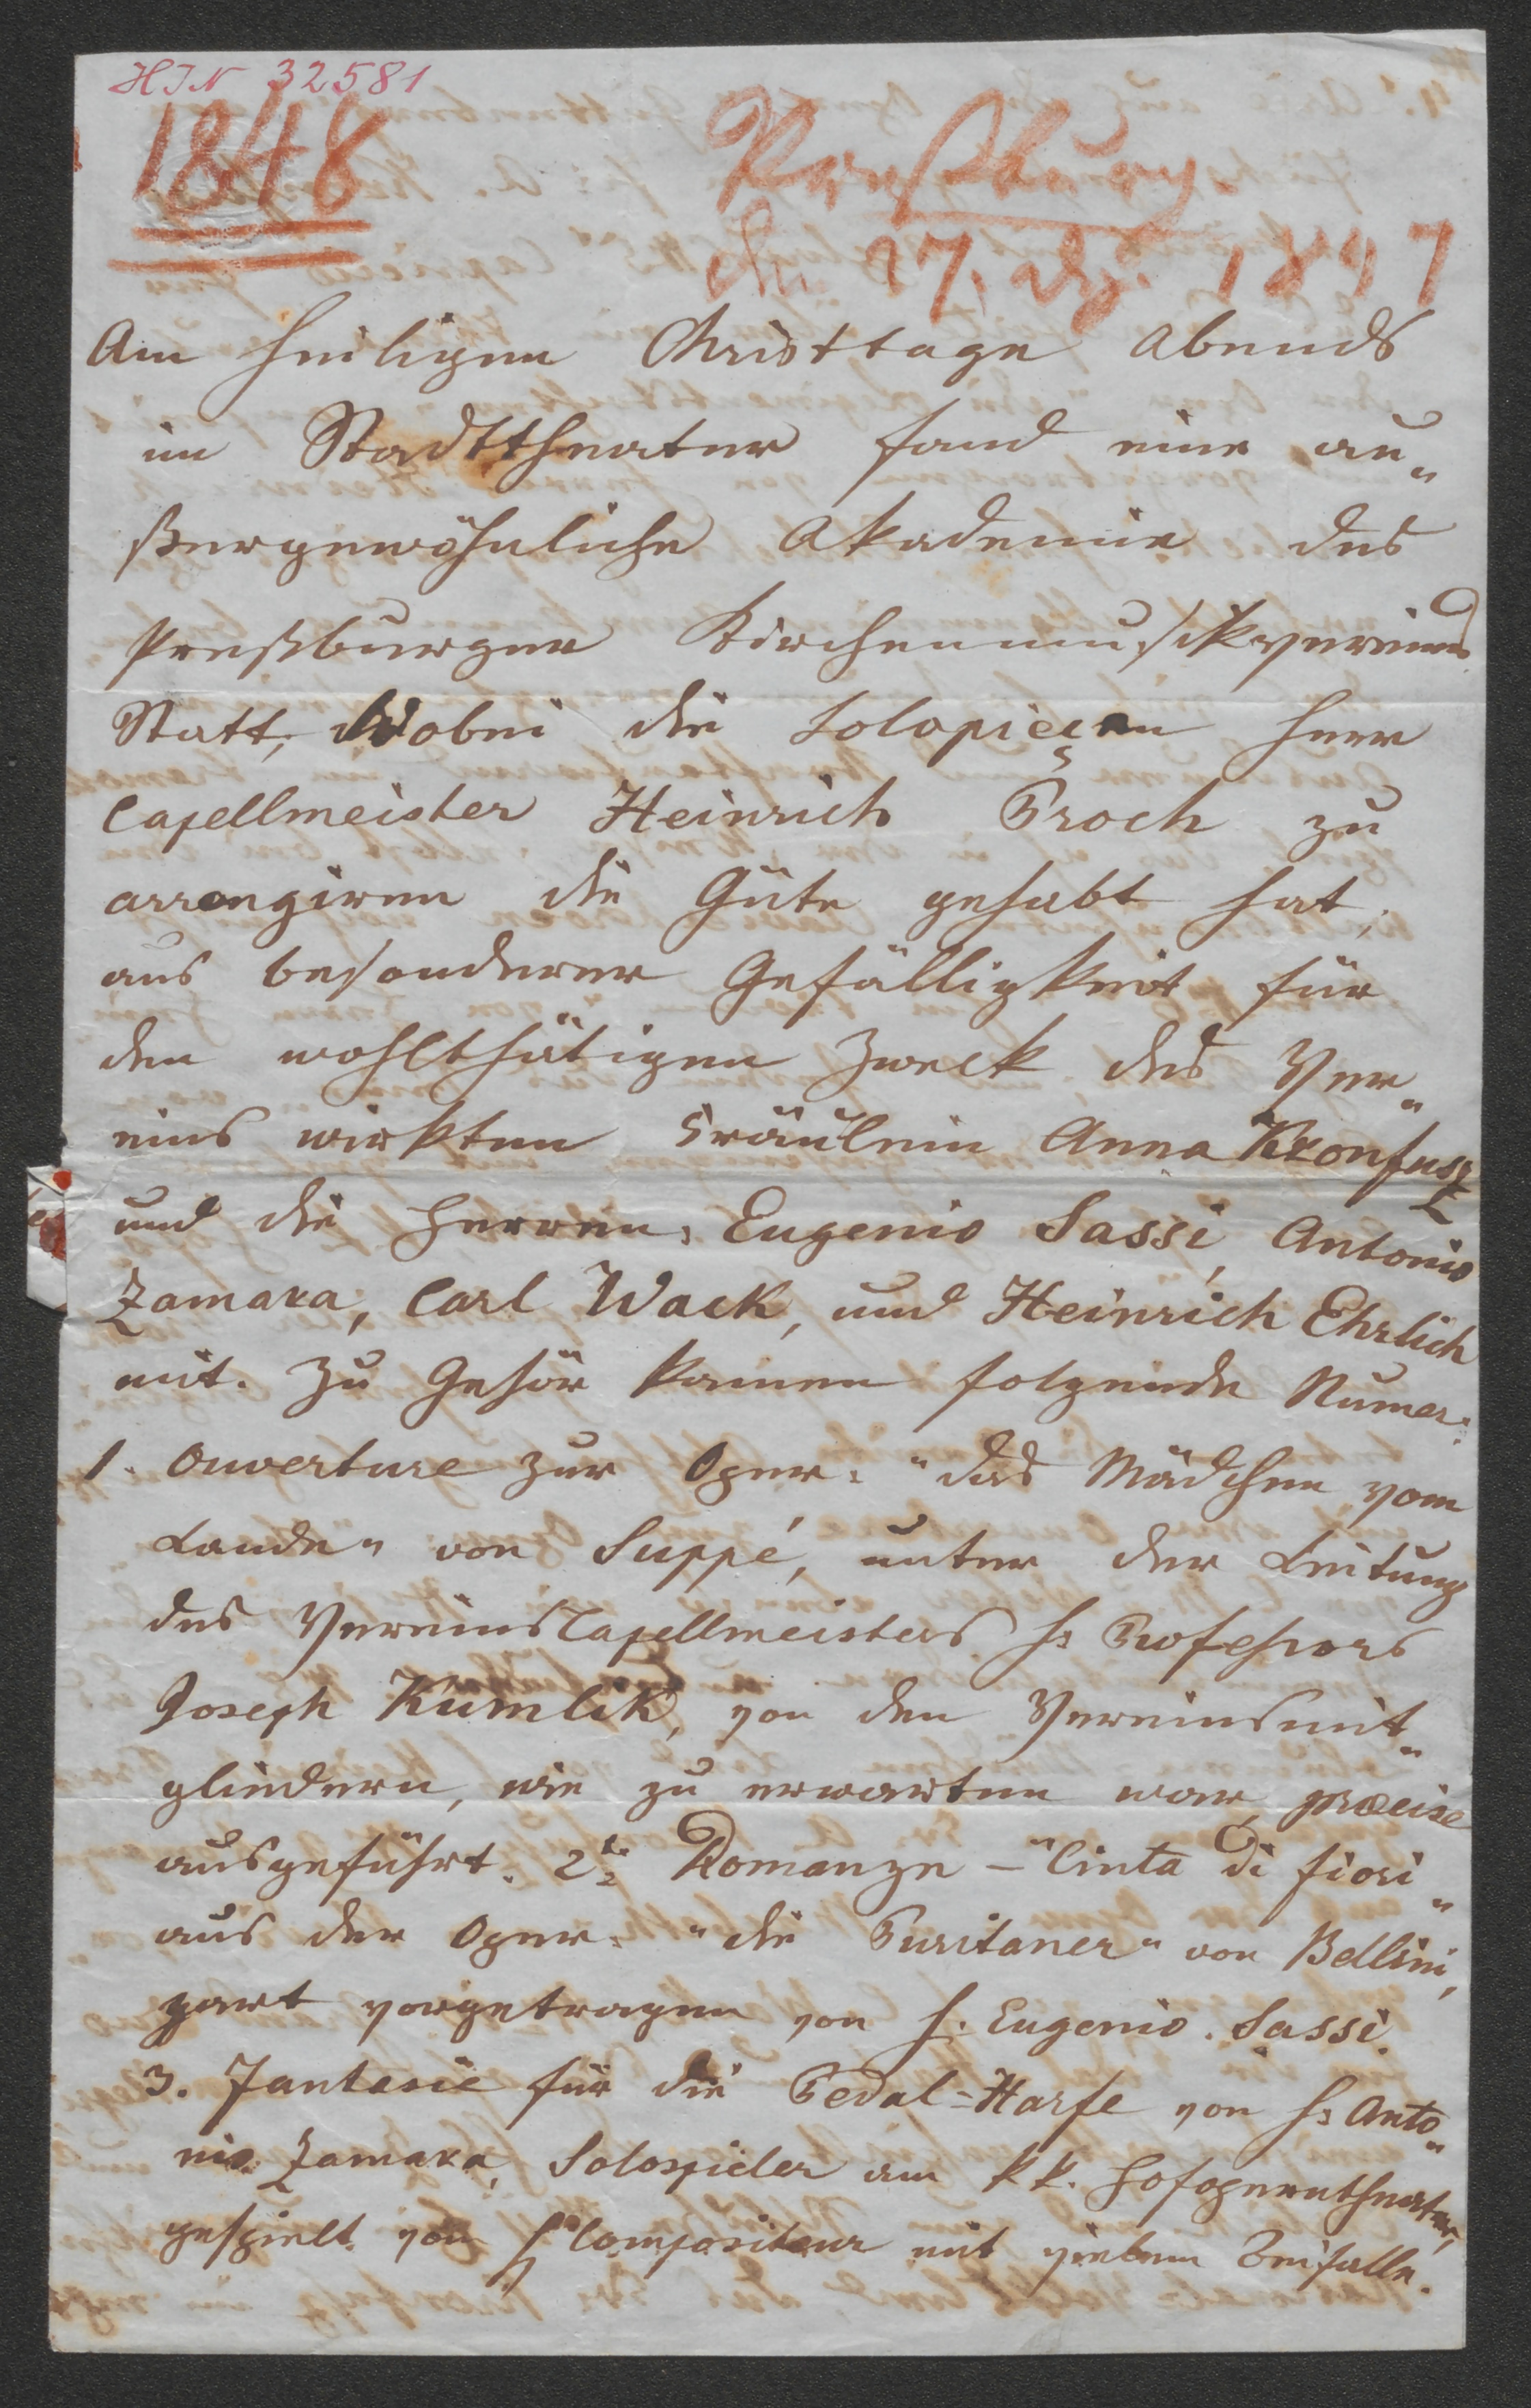 HIN 32581
1848
Preßburg
den 27. Dez. 1847
Am heiligen Christtage Abends
im Stadttheater fand eine au„
ßergewöhnliche Akademie des
Preßburger Kirchenmusikvereines
Statt, Wobei die Solopieçen Herr
Capellmeister Heinrich Proch zu
arrangiren die Güte gehabt hat;
aus besonderer Gefälligkeit für
den wohlthätigen Zweck des Ver„
eins wirkten Fräulein Anna Kronfuss
und die Herren: Eugenio Sassi, Antonio
Zamara, Carl Wack, und Heinrich Ehrlich
mit. Zu Gehör kamen folgende Numer:
1. Ouverture zur Oper: "das Mädchen vom
Lande" von Suppé, unter der Leitung
des VereinsCapellmeisters H: Professors
Joseph Kumlik, von den Vereinsmit„
gliedern, wie zu erwarten war, præcise
ausgeführt. 2te Romanze – "Cinta di fiori"
aus der Oper: "die Puritaner" von Bellini,
zart vorgetragen von H. Eugenio Sassi.
3. Fantasie für die Pedal-Harfe von H: Anto„
nio Zamara, Solospieler am kk. Hofoperntheater,
gespielt von H Compositeur mit vielem Beifalle.